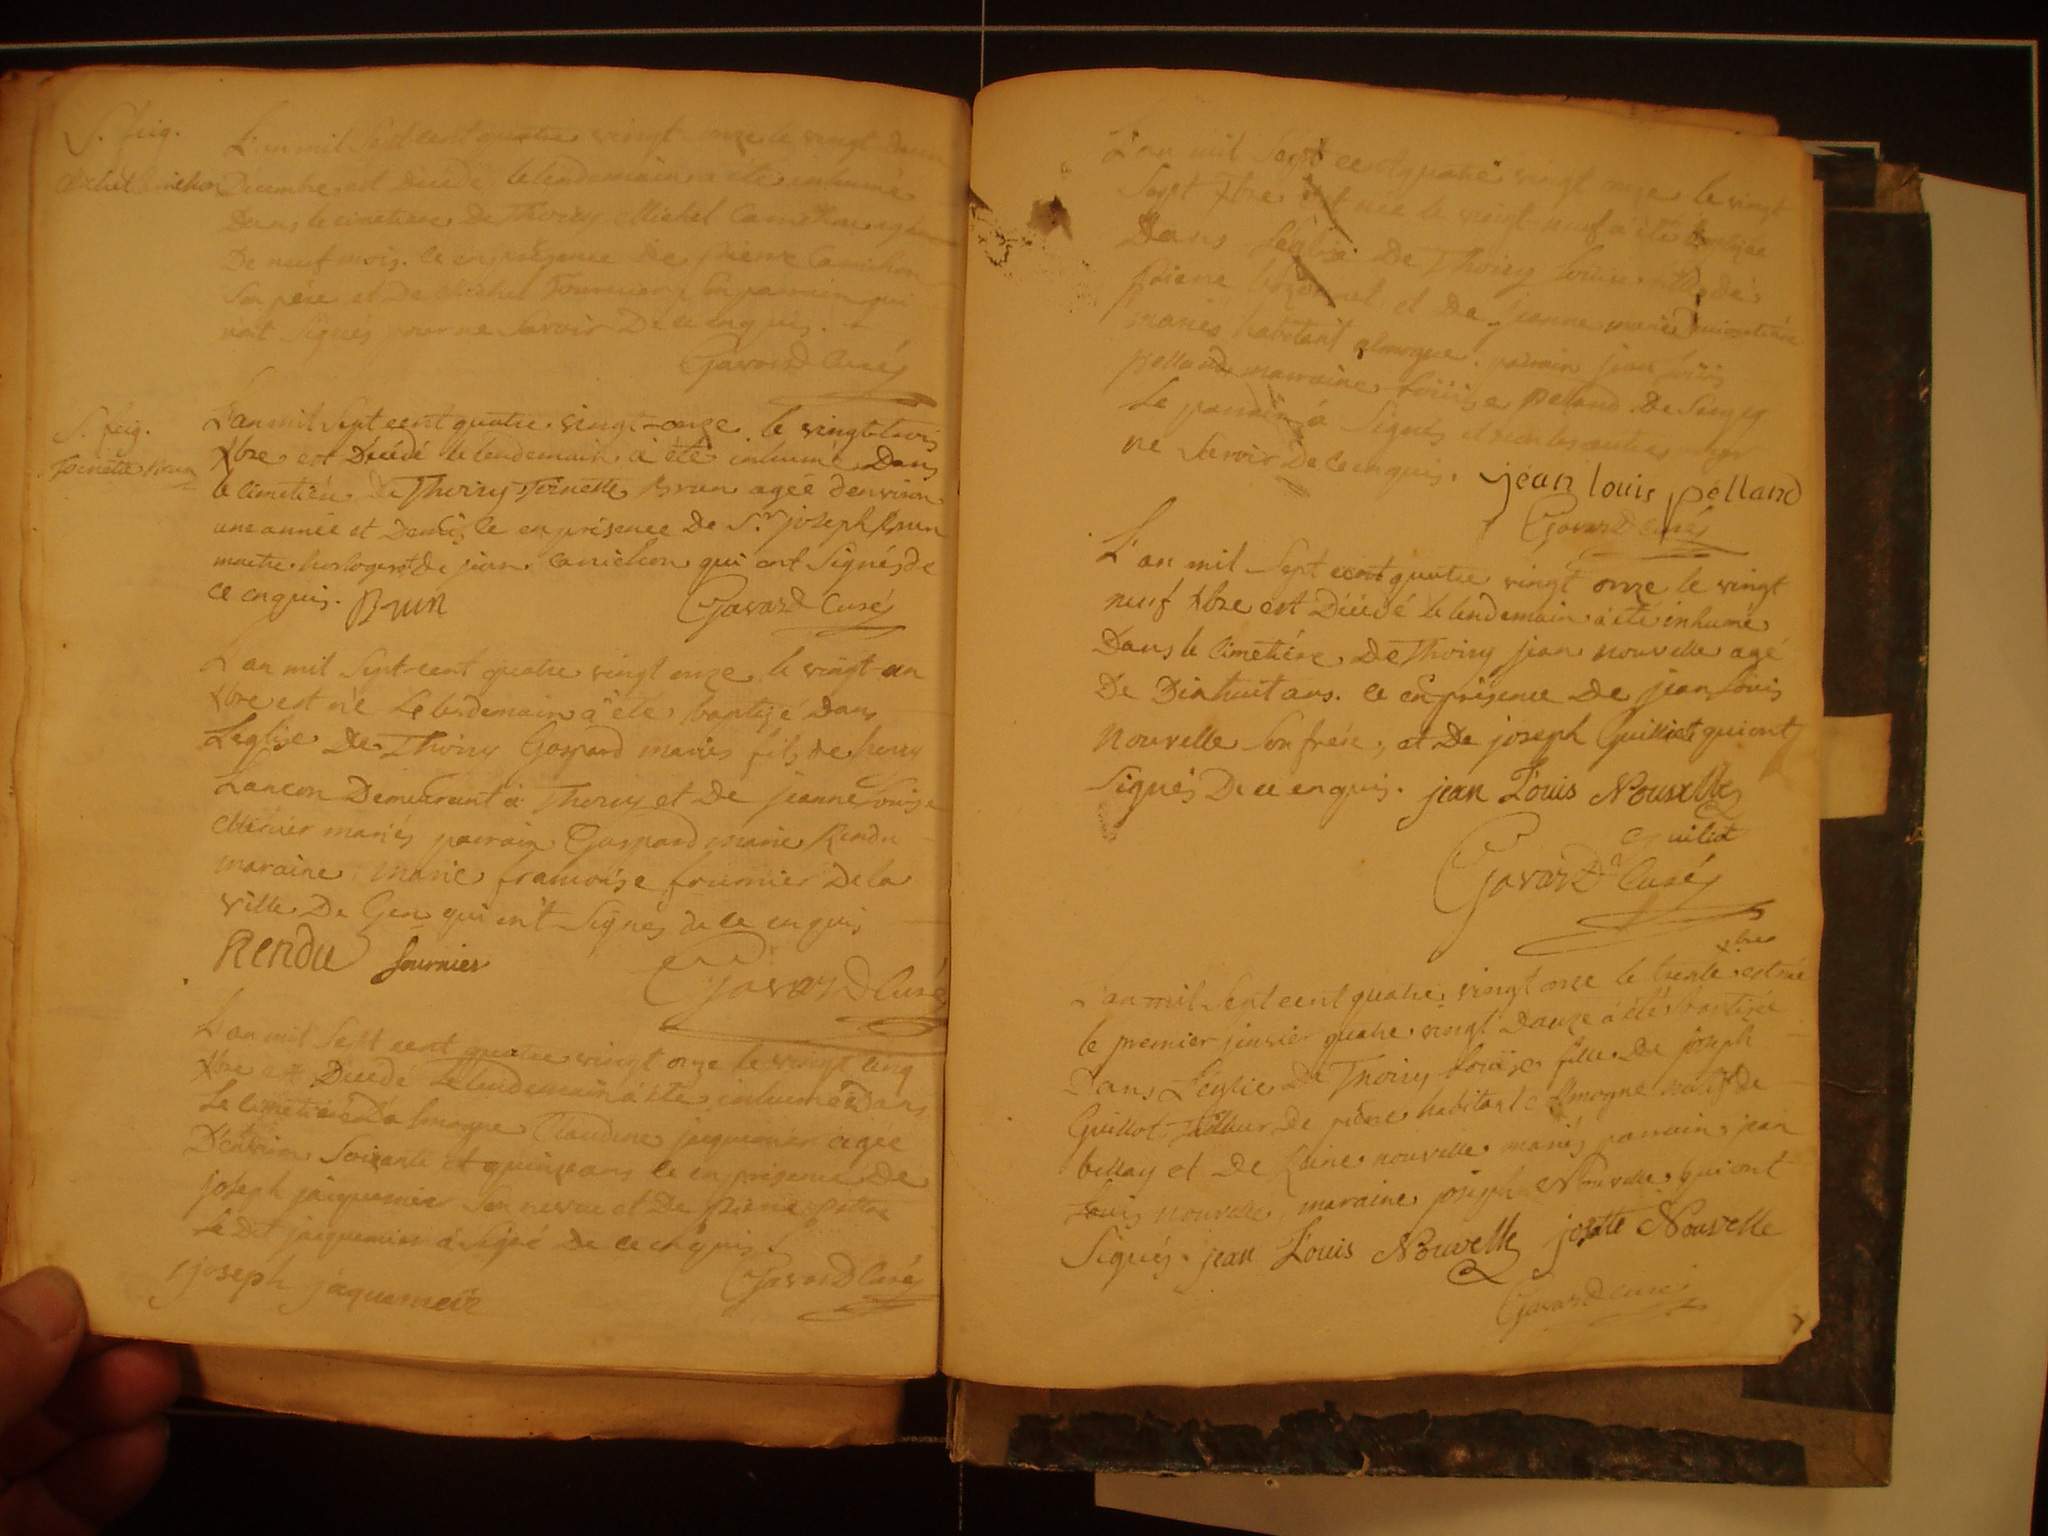 S. feig.
Michel Canichon
L'an mil Sept cent quatre vingt onze le vingt deux
Decembre est Décédé le lendemain a été inhumé
Dans le cimetiere De Thoiry Michel Canichon agé
De neuf mois. ce en présence De pierre Canichon
Son pére et De Michel Fournier Son parrain qui
n'ont Signés pour ne Savoir De ce enquis.
Gavard Curé
S. feig.
Toinette Brun
L'an mil Sept cent quatre vingt-onze le vingt-trois
Xbre est Décédé le lendemain à été inhumé Dans
le Cimetiére De Thoiry Toinette Brun agée d'environ
une année et Demi, ce en présence De S.r joseph Brun
maitre horloger et De jean Canichon qui ont Signés de
ce enquis. Brun
Gavard Curé
L'an mil Sept-cent quatre vingt onze le vingt-un
Xbre est né Le lendemain à été baptizé Dans
L'eglise De Thoiry Gaspard maries fils de henry
Lancon Demeurant à Thoiry et De jeanne Louise
Mariés parrain Gaspard marie Rendu
maraine marie francoise fournier De la
ville De Gex qui ont Signés de ce enquis
Rendu fournier
Gavard Curé
L'an mil Sept cent quatre vingt onze le vingt cinq
Xbre est Décédé Le lendemain à été inhumée Dans
Le cimetiére D'almogne Claudine jaquemier agée
D'environ Soixante et quinze ans ce en présence De
joseph jaiquemier Son neveu et De pierre
Le Dit jaiquemier à Signé De ce enquis.
joseph jaquemeir
Gavard Curé
L'an mil Sept cent quatre vingt onze le vingt
Sept Xbre est née le vingt-neuf a été baptizée
Dans l'église De Thoiry Louise fille de
pierre et De jeanne marie
mariés habitant almogne. parrain jean Louis
pelland marraine Louise Peland De Sergy
Le parrain à Signés et non les autres pour
ne Savoir De ce enquis. jéan louis pélland
Gavard curé
L'an mil Sept cent quatre vingt onze le vingt
neuf Xbre est Décédé le lendemain à été inhumé
Dans le Cimetiére De Thoiry jean nouvelle agé
De Dixhuit ans. ce en présence De jean Louis
nouvelle Son frére, et De joseph Guilliot qui ont
Signés De ce enquis. jean Louis Nouvelle
Guiliot
Gavard Curé
L'an mil Sept cent quatre vingt onze le trente Xbre est née
le premier janvier quatre vingt Douze à été baptizée
Dans L'églie De Thoiry Louise fille De joseph
Guillot Tailleur De piérre habitant almogne natif de
bellay et De Reine nouvelle mariés parrain jean
Louis nouvelle, maraine joseph Nouvelle qui ont
Signés. jean Louis Nouvelle josette Nouvelle
Gavard curé